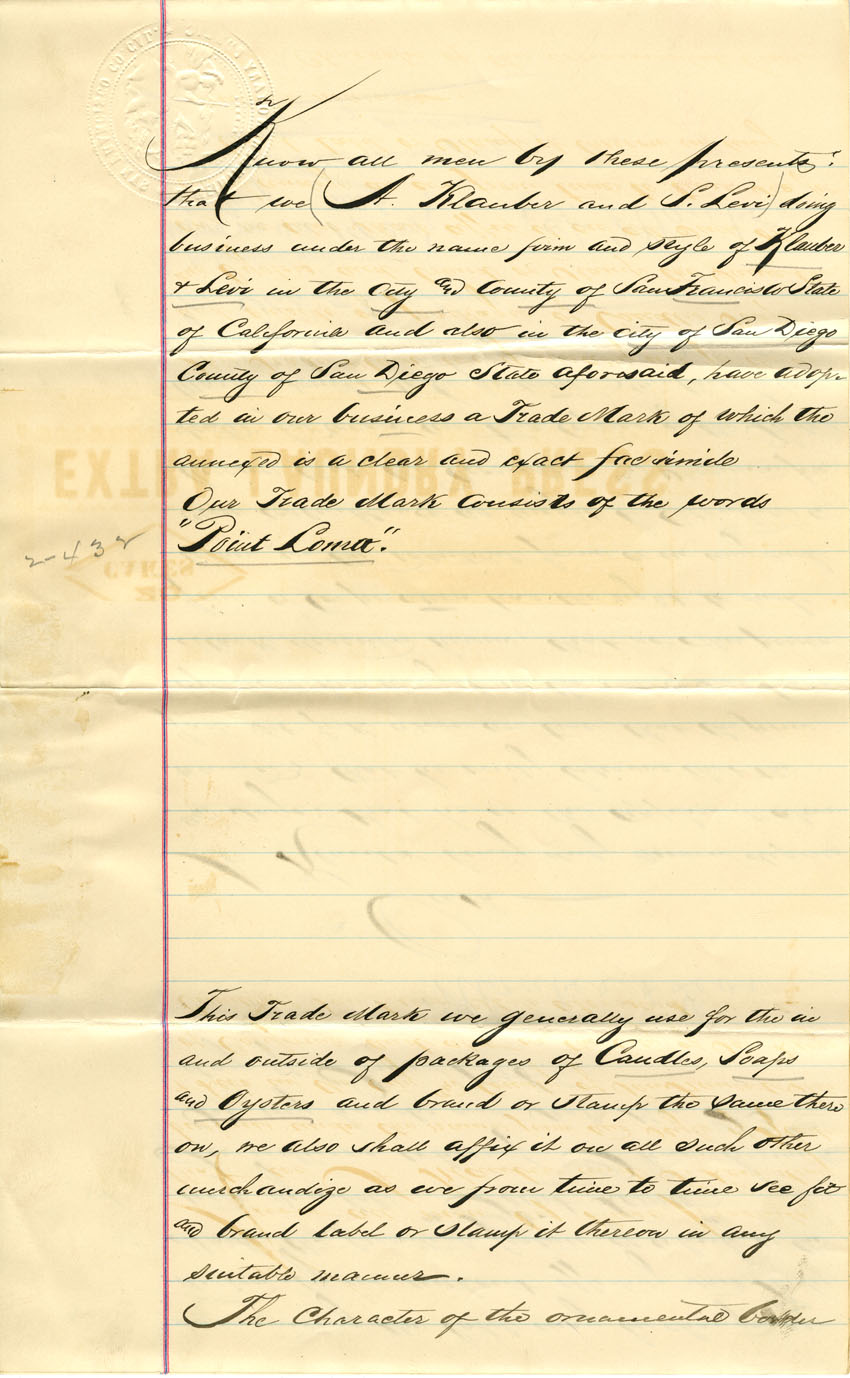 Know all men by these presents:
that we (A. Klauber and S. Levi) doing
business under the name firm and style of Klauber
& Levi in the City and County of San Francisco State
of California and also in the city of San Diego
County of San Diego State aforesaid, have adop-
ted in our business a Trade Mark of which the
annexed is a clear and exact fac simile
Our Trade Mark consists of the words
"Point Loma".
EXTRA LAUNDRY PRESS
2-432
CAKES
20
This Trade Mark we generally use for the in
and outside of packages of Candles, Soaps
and Oysters and brand or stamp the same there
on, we also shall affix it on all such other
merchandize as we from time to time see fit
and brand label or stamp it thereon in any
suitable manner.
The Character of the ornamental border